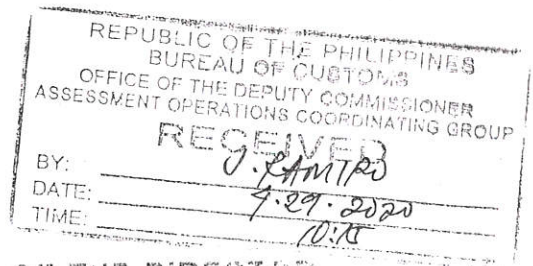 REPUBLIC OF THE PHILIPPINES
BUREAU OF CUSTOMS
OFFICE OF THE DEPUTY COMMISSIONER
ASSESSMENT OPERATIONS COORDINATING GROUP
RECEIVED
BY:
DATE: 4.29.2020
TIME: 10:15